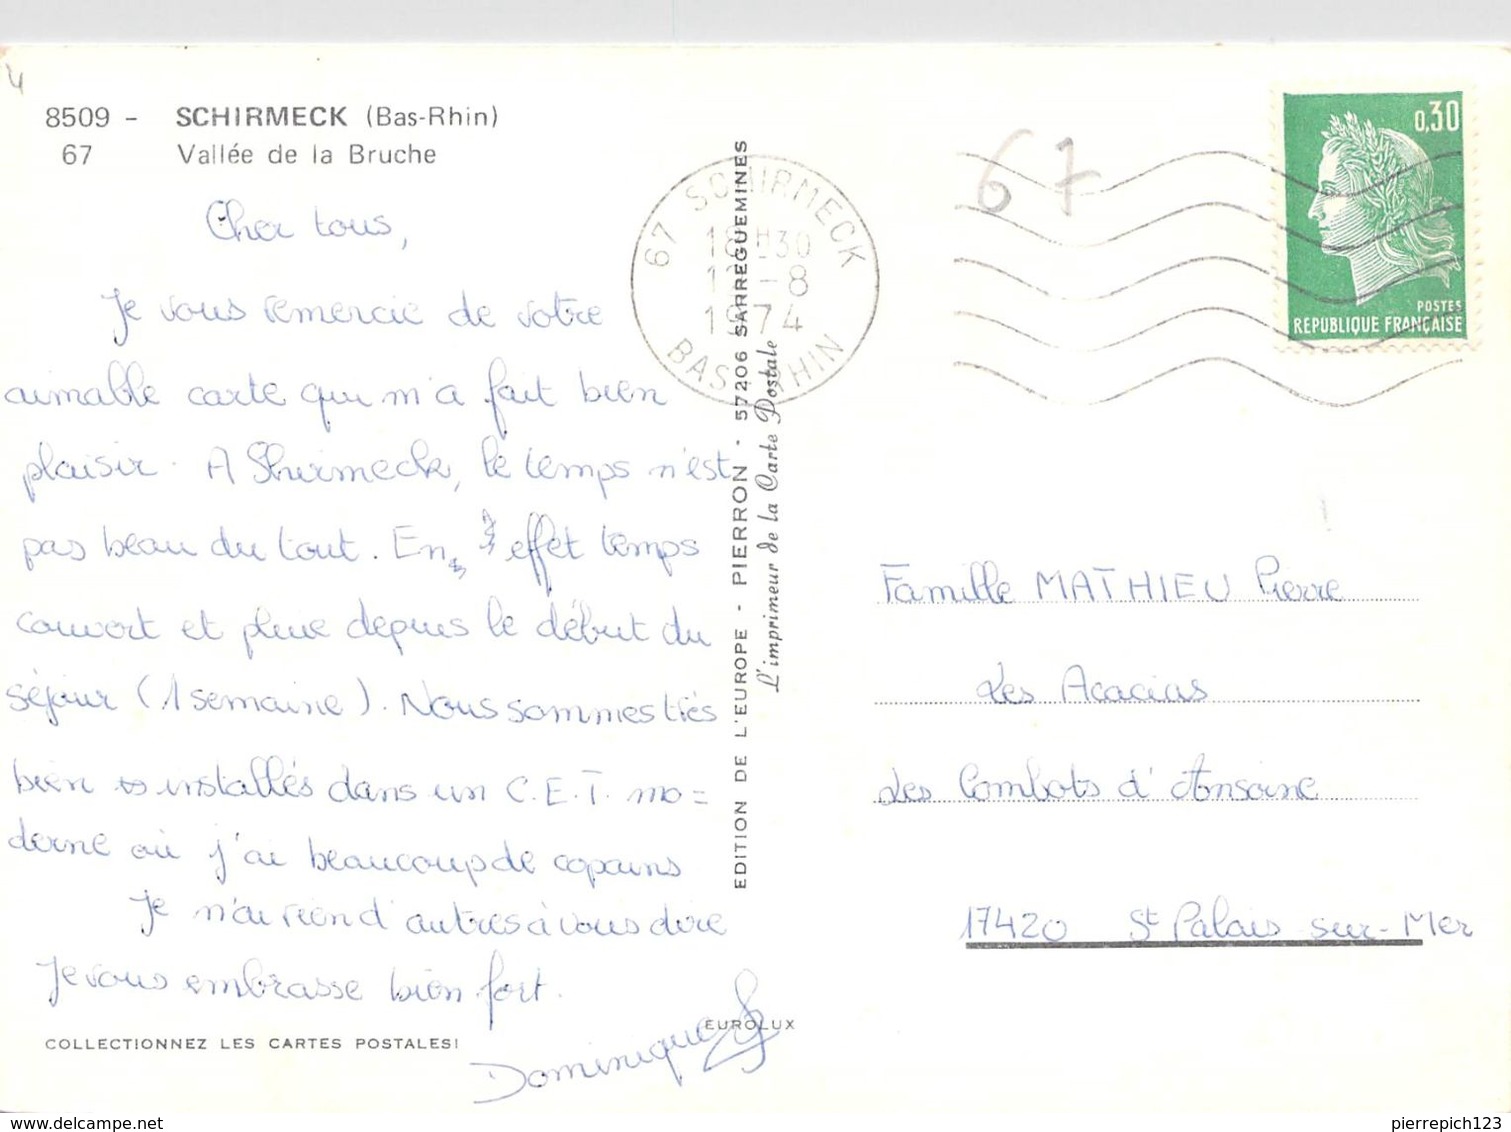 4
8509 - SCHIRMECK (Bas-Rhin)
67 Vallée de la Bruche
Cher tous,
Je vous remercie de votre
aimable carte qui m'a fait bien
plaisir. A Shirmeck, le temps n'est
pas beau du tout. En effet temps
couvert et pluie depuis le début du
séjour (1 semaine). Nous sommes très
bien installés dans un C.E.T. mo=
derne où j'ai beaucoup de copains
Je n'ai rien d'autres à vous dire
Je vous embrasse bien fort.
Dominique
COLLECTIONNEZ LES CARTES POSTALES!
EUROLUX
EDITION DE L'EUROPE - PIERRON - 57206 SARREGUEMINES
L'imprimeur de la Carte Postale
67 SCHIRMECK
18H30
-8
1974
BAS-RHIN
67
0,30
POSTES
REPUBLIQUE FRANÇAISE
Famille MATHIEU Pierre
Les Acacias
Les Combots d'Ansoine
17420 St Palais sur-Mer
www.delcampe.net
pierrepich123